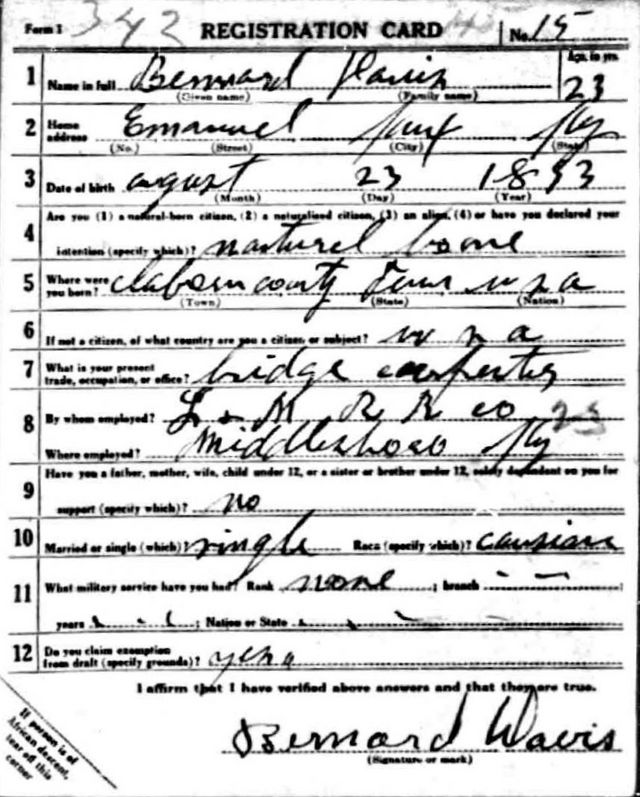 Form 1 342 REGISTRATION CARD No. 15
1 Name in full Bernard Davis Age, in yrs. 23
(Given name) (Family name)
2 Home address Emanuel Ky
(No.) (Street) (City) (State)
3 Date of birth august 23 1893
(Month) (Day) (Year)
4 Are you (1) a natural-born citizen, (2) a naturalized citizen, (3) an alien, (4) or have you declared your
intention (specify which)? natural bone
5 Where were you born? claborn county Tenn u s a
(Town) (State) (Nation)
6 If not a citizen, of what country are you a citizen or subject? u s a
7 What is your present trade, occupation, or office? bridge carpenter
8 By whom employed? L & N R R co 23
Where employed? Middlesboro Ky
9 Have you a father, mother, wife, child under 12, or a sister or brother under 12, solely dependent on you for
support (specify which)? no
10 Married or single (which)? single Race (specify which)? causian
11 What military service have you had? Rank none ; branch
years ; Nation or State
12 Do you claim exemption from draft (specify grounds)?
I affirm that I have verified above answers and that they are true.
Bernard Davis
(Signature or mark)
If person is of
African descent,
tear off this
corner